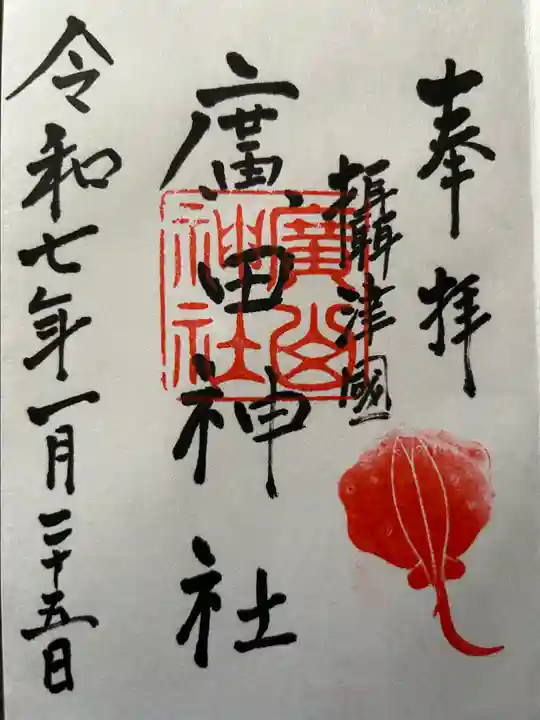 奉拝
攝津國
廣田神社
廣田神社
令和七年一月二十五日